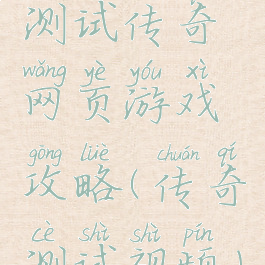 测试传奇
wǎng yè yóu xì
网页游戏
gōng lüè chuán qí
攻略(传奇
cè shì shì pín
测试视频)